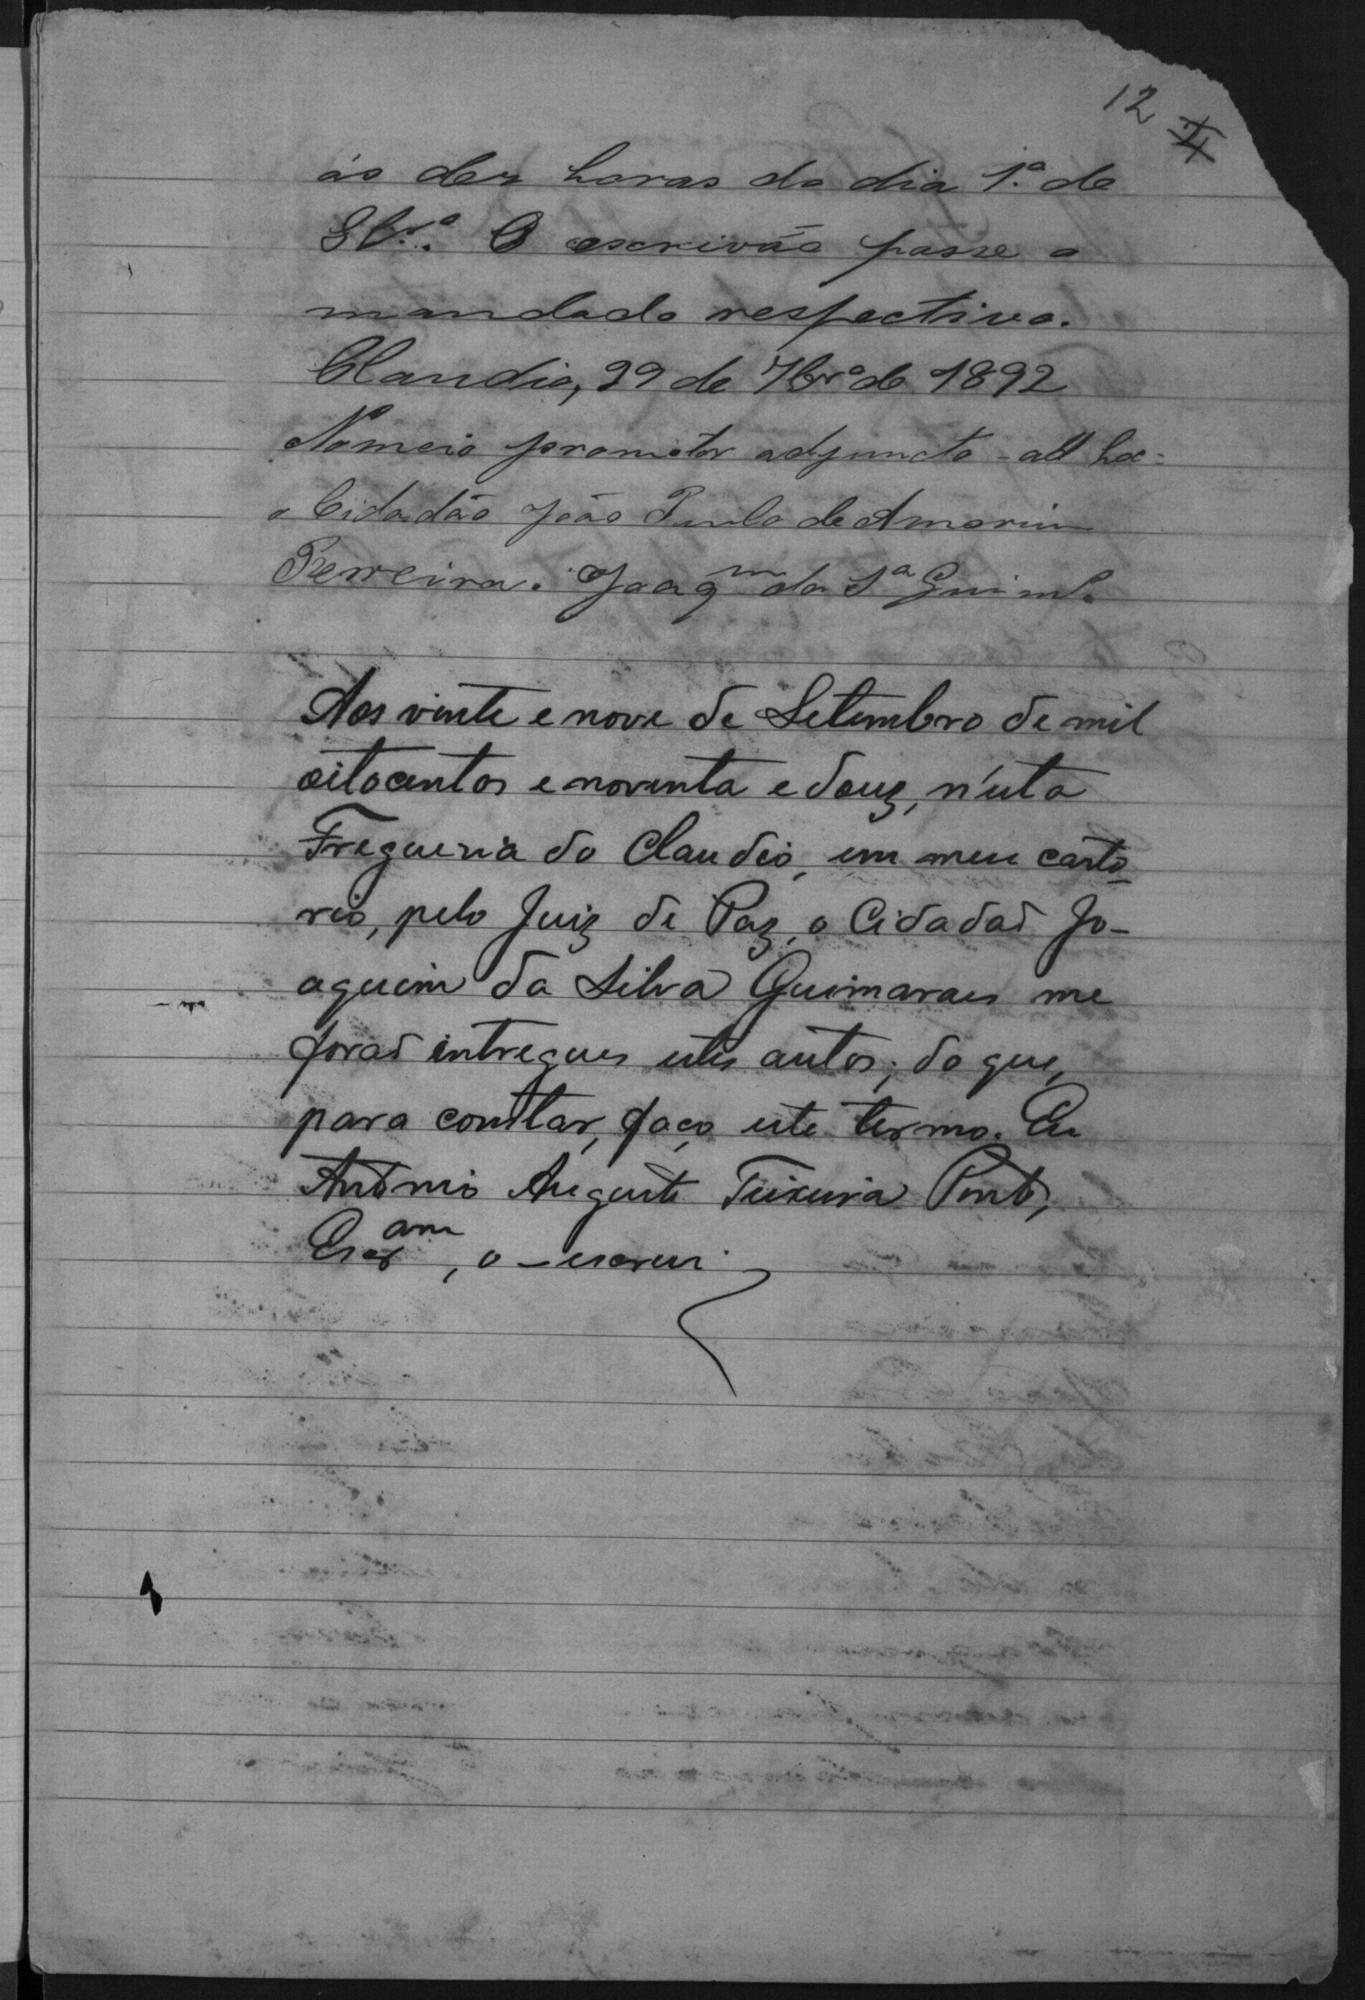 12
ás dez horas do dia 1.º de
8br.º O escrivão passe o
mandado respectivo.
Claudio, 29 de 7brº de 1892
Nomeio promotor adjuncto - ad hoc =
o Cidadão João Paulo de Amorim
Perreira. Joaqm da Sª Guimes.
Aos vinte e nove de Setembro de mil
oitocentos e noventa e douz, n'esta
Freguesia do Claudio, em meu carto-
rio, pelo Juiz de Paz, o Cidadaõ Jo-
aquim da Silva Guimaraes me
foraõ entregues estes autos; do que,
para constar, faço este termo. Eu
Antonio Augusto Teixeira Pinto,
Escram, o escrevi